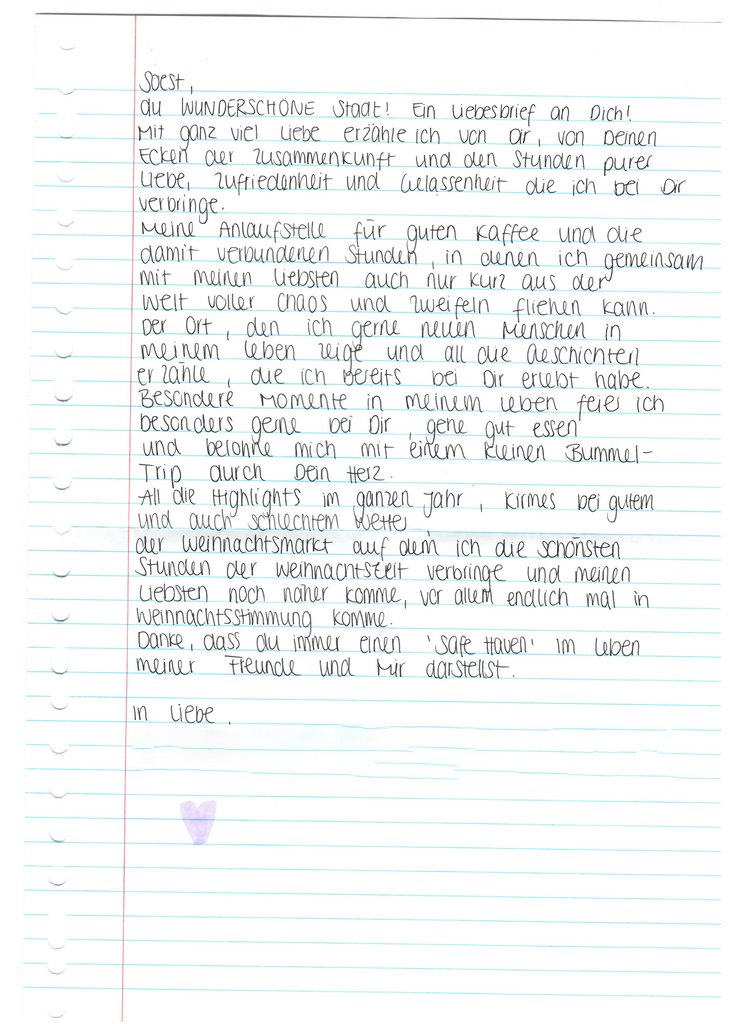 Soest,
du WUNDERSCHÖNE Stadt! Ein Liebesbrief an Dich!
Mit ganz viel Liebe erzähle ich von Dir, von Deinen
Ecken der Zusammenkunft und den Stunden purer
Liebe, Zufriedenheit und Gelassenheit die ich bei Dir
verbringe.
Meine Anlaufstelle für guten Kaffee und die
damit verbundenen Stunden, in denen ich gemeinsam
mit meinen Liebsten auch nur kurz aus der
Welt voller Chaos und Zweifeln fliehen kann.
Der Ort, den ich gerne neuen Menschen in
meinem Leben zeige und all die Geschichten
erzähle, die ich bereits bei Dir erlebt habe.
Besondere Momente in meinem Leben feier ich
besonders gerne bei Dir, gehe gut essen
und belohne mich mit einem kleinen Bummel-
Trip durch Dein Herz.
All die Highlights im ganzen Jahr, Kirmes bei gutem
und auch schlechtem Wetter,
der Weihnachtsmarkt auf dem ich die schönsten
Stunden der Weihnachtszeit verbringe und meinen
Liebsten noch näher komme, vor allem endlich mal in
Weihnachtsstimmung komme.
Danke, dass du immer einen 'Safe Haven' im Leben
meiner Freunde und Mir darstellst.
In Liebe,